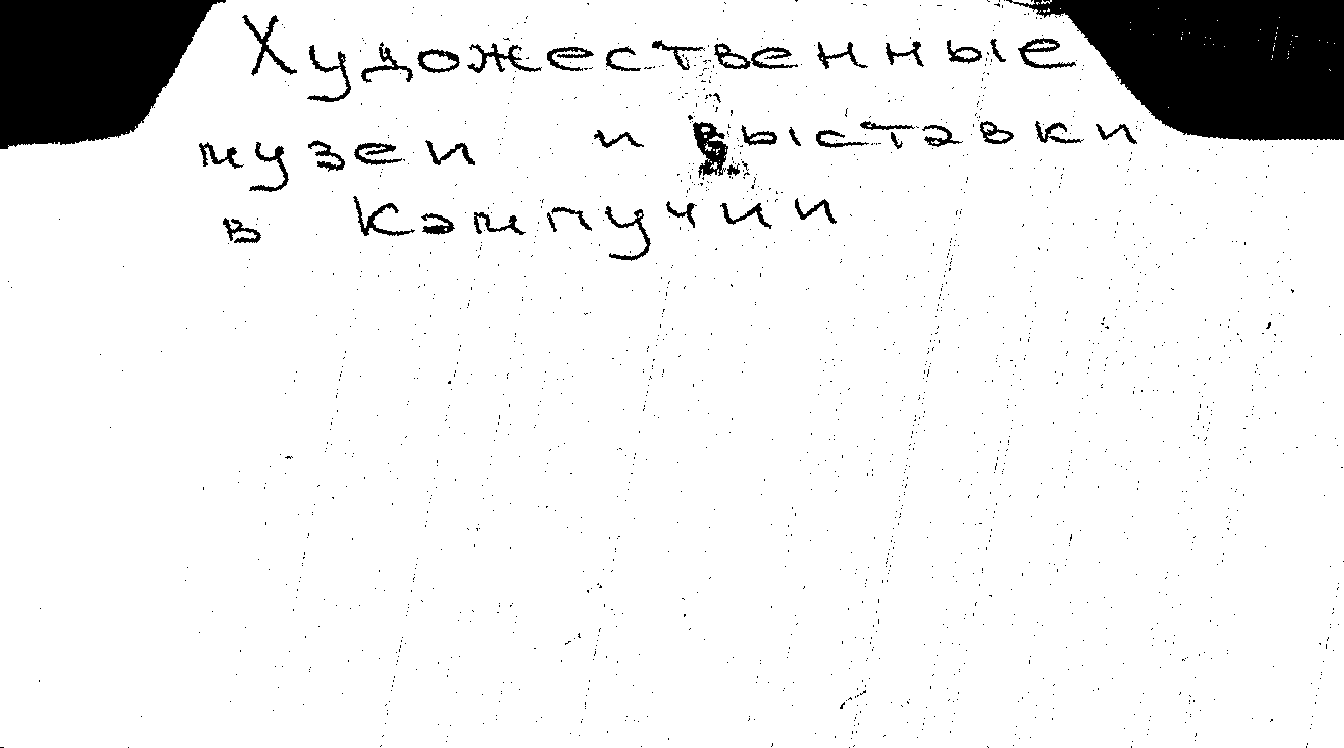 Художественные
музеи и выставки
в Кампучии